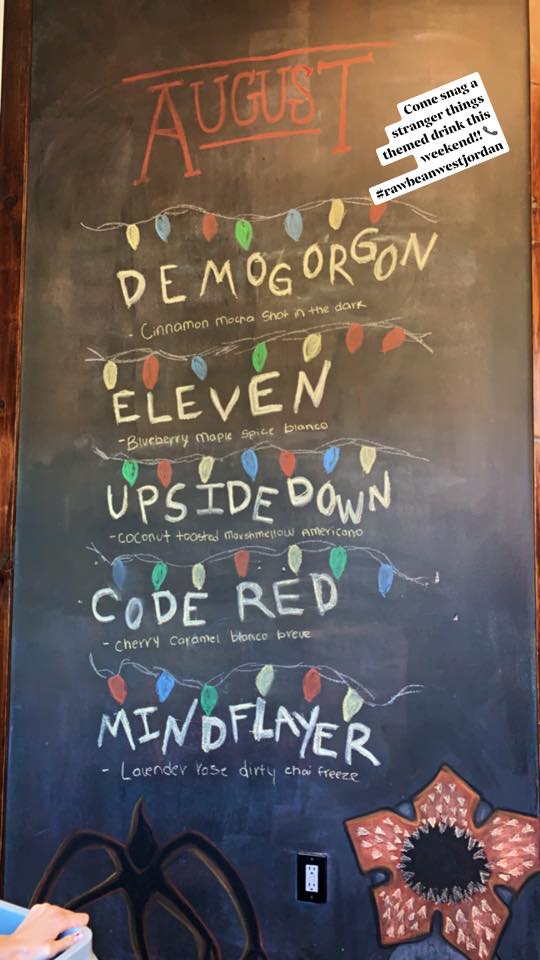 AUGUST
Come snag a
stranger things
themed drink this
weekend!! 📞
#rawbeanwestjordan
DEMOGORGON
- Cinnamon mocha shot in the dark
ELEVEN
-Blueberry maple spice blanco
UPSIDEDOWN
-coconut toasted marshmellow Americano
CODE RED
- cherry caramel blanco breve
MINDFLAYER
- Lavender rose dirty chai freeze